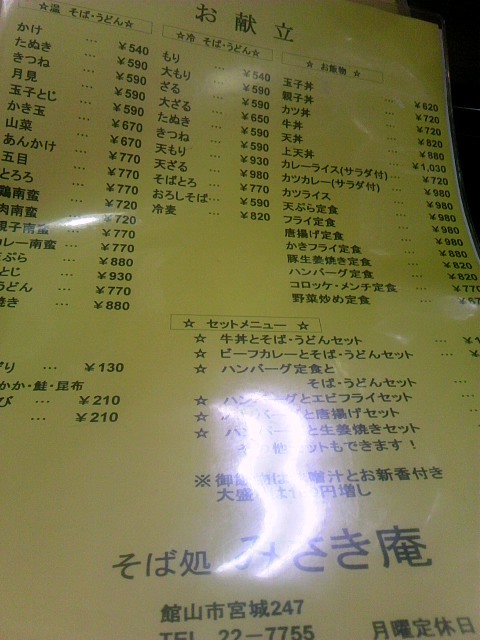 お献立
☆温 そば・うどん☆
かけ … ￥540
たぬき … ￥590
きつね … ￥590
月見 … ￥590
玉子とじ … ￥590
かき玉 … ￥670
山菜 … ￥670
あんかけ … ￥770
五目 … ￥770
とろろ … ￥770
鶏南蛮 … ￥720
肉南蛮 … ￥720
親子南蛮 … ￥770
カレー南蛮 … ￥770
天ぷら … ￥880
とじ … ￥930
うどん … ￥770
焼き … ￥880
￥130
かか・鮭・昆布
び … ￥210
… ￥210
☆冷 そば・うどん☆
もり … ￥540
大もり … ￥590
ざる … ￥590
大ざる … ￥650
たぬき … ￥590
きつね … ￥590
天もり … ￥930
天ざる … ￥980
そばとろ … ￥770
おろしそば… ￥590
冷麦 … ￥820
☆ お飯物 ☆
玉子丼 … ￥620
親子丼 … ￥720
カツ丼 … ￥720
牛丼 … ￥820
天丼 … ￥880
上天丼 … ￥1,030
カレーライス(サラダ付) … ￥720
カツカレー(サラダ付) … ￥980
カツライス … ￥980
天ぷら定食 … ￥980
フライ定食 … ￥980
唐揚げ定食 … ￥880
かきフライ定食 … ￥980
豚生姜焼き定食 … ￥820
ハンバーグ定食 … ￥820
コロッケ・メンチ定食 … ￥770
野菜炒め定食 …
☆ セットメニュー ☆
☆ 牛丼とそば・うどんセット …
☆ ビーフカレーとそば・うどんセット …
☆ ハンバーグ定食と
そば・うどんセット …
☆ ハンバーグとエビフライセット
☆ ハンバーグと唐揚げセット
☆ ハンバーグと生姜焼きセット
その他セットもできます！
※ 御飯物は味噌汁とお新香付き
大盛 円増し
そば処 みさき庵
館山市宮城247
TEL 22－7755 月曜定休日